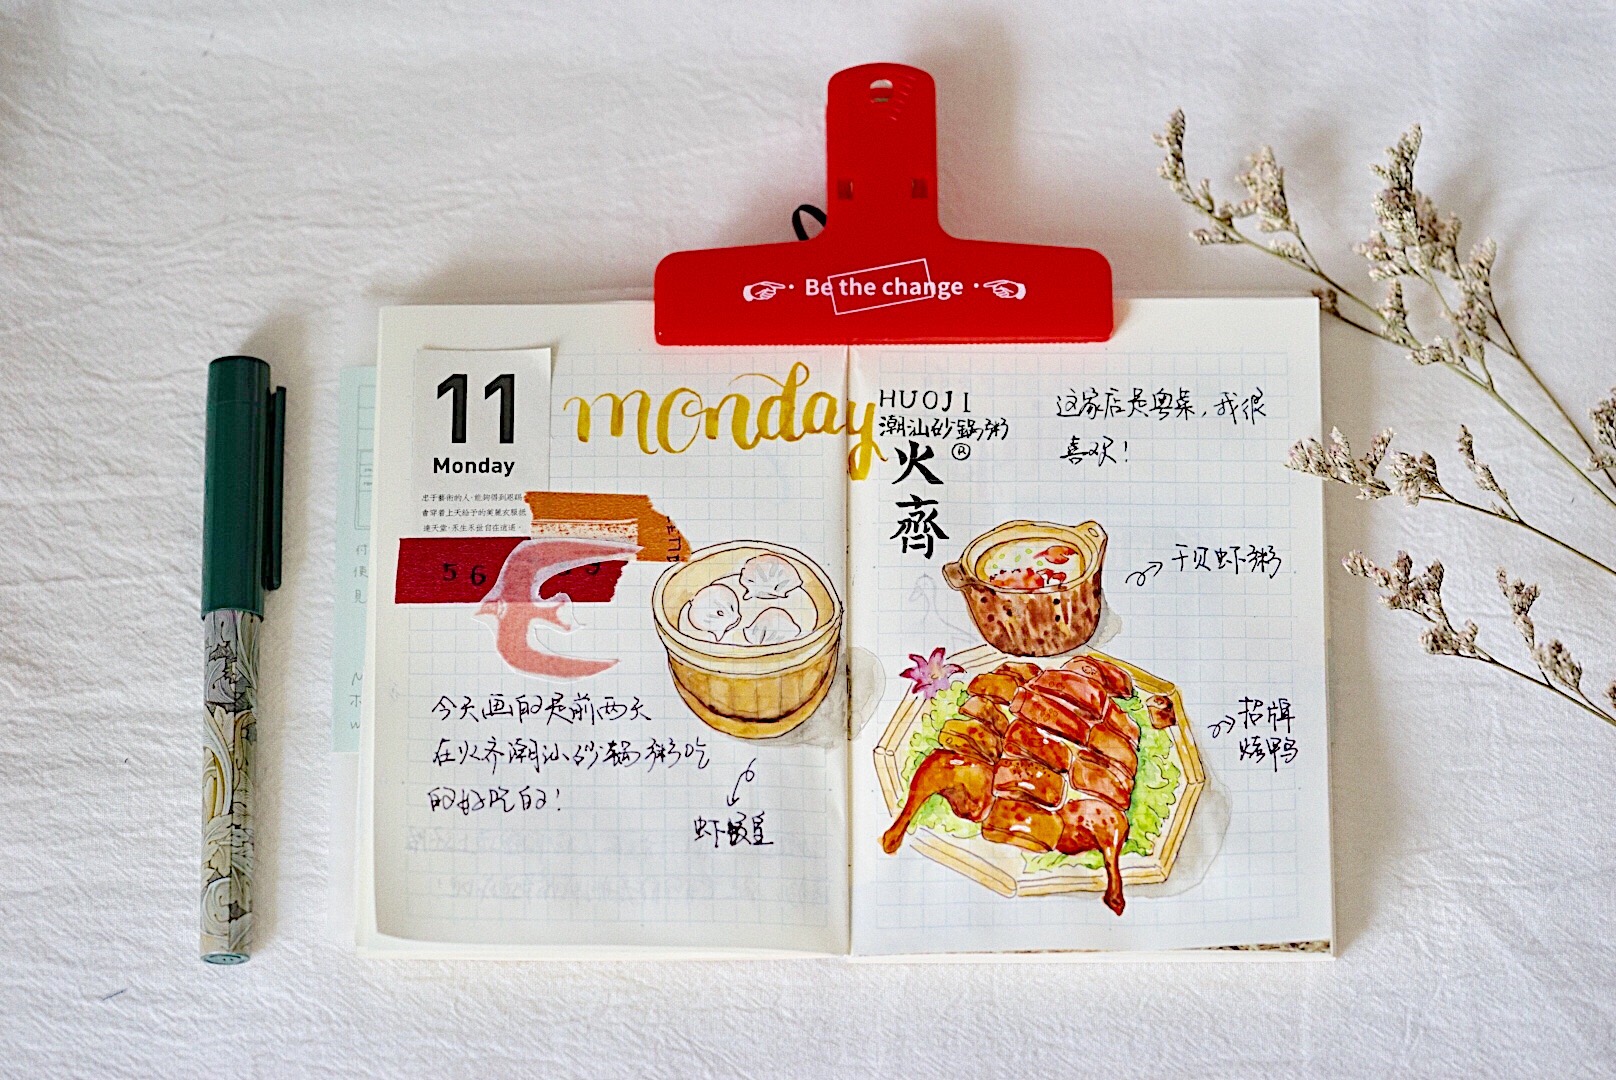 Be the change
11
Monday
monday
忠于藝術的人,能夠得到恩賜
會穿着上天給予的美麗衣服抵
達天堂,永生永世自在逍遥。
5 6
今天画的是前两天
在火齐潮汕砂锅粥吃
的好吃的!
虾饺皇
HUOJI
潮汕砂锅粥
火®
齊
这家店是粤菜,我很
喜欢!
干贝虾粥
招牌
烤鸭